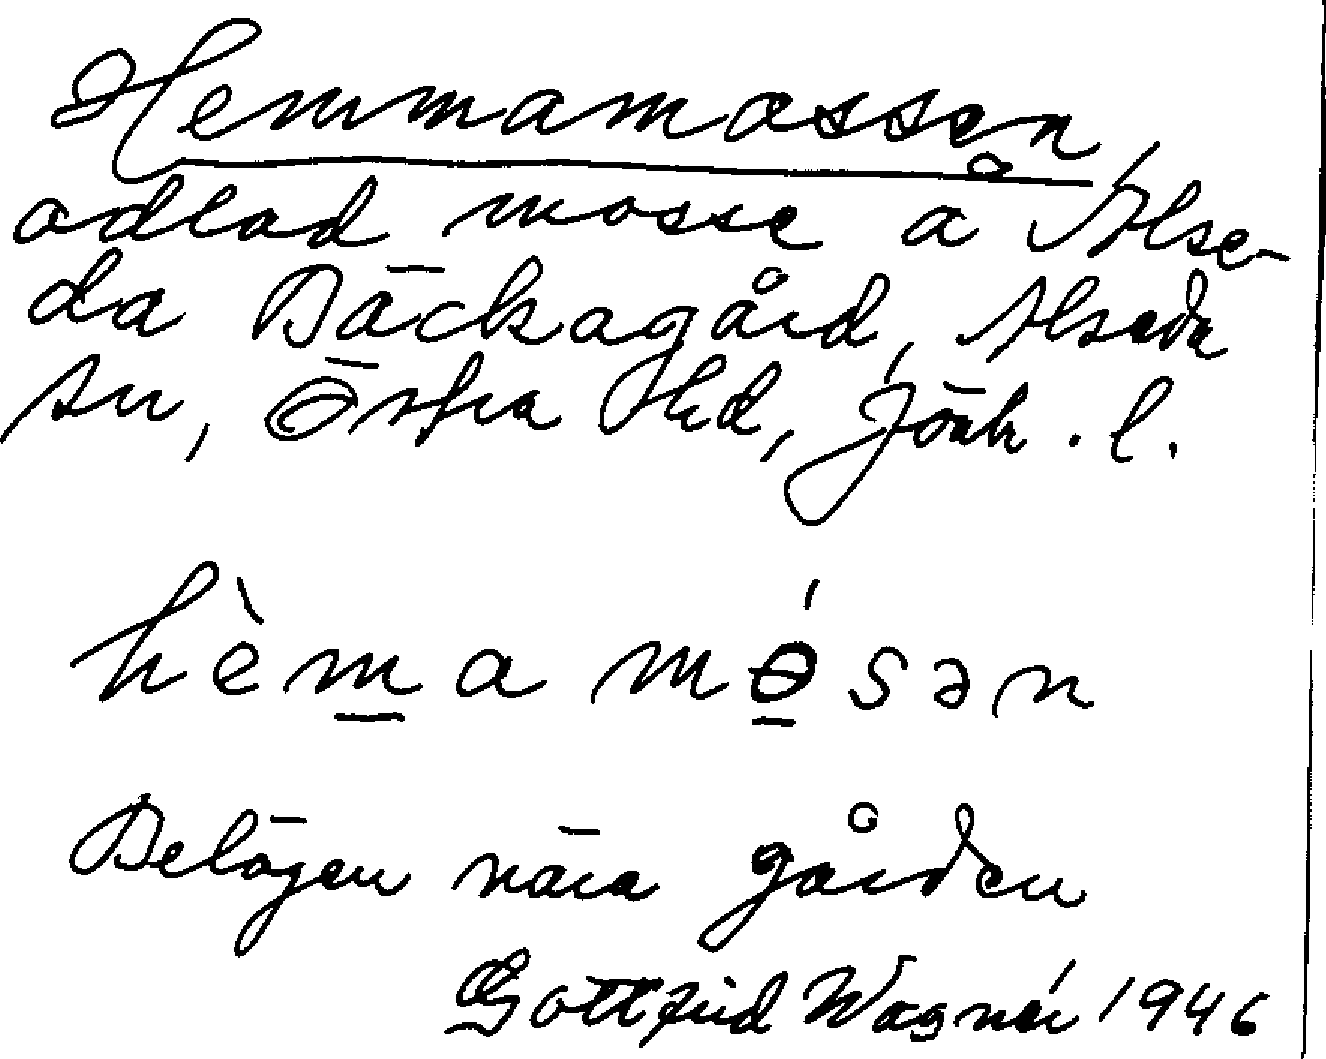 Hemmamossen,
odlad mosse å Alse-
da Bäckagård, Alseda
sn, Östra Hd, Jönk. l.
hèmamɵ́sən
Belägen nära gården
Gottfrid Wagnér 1946